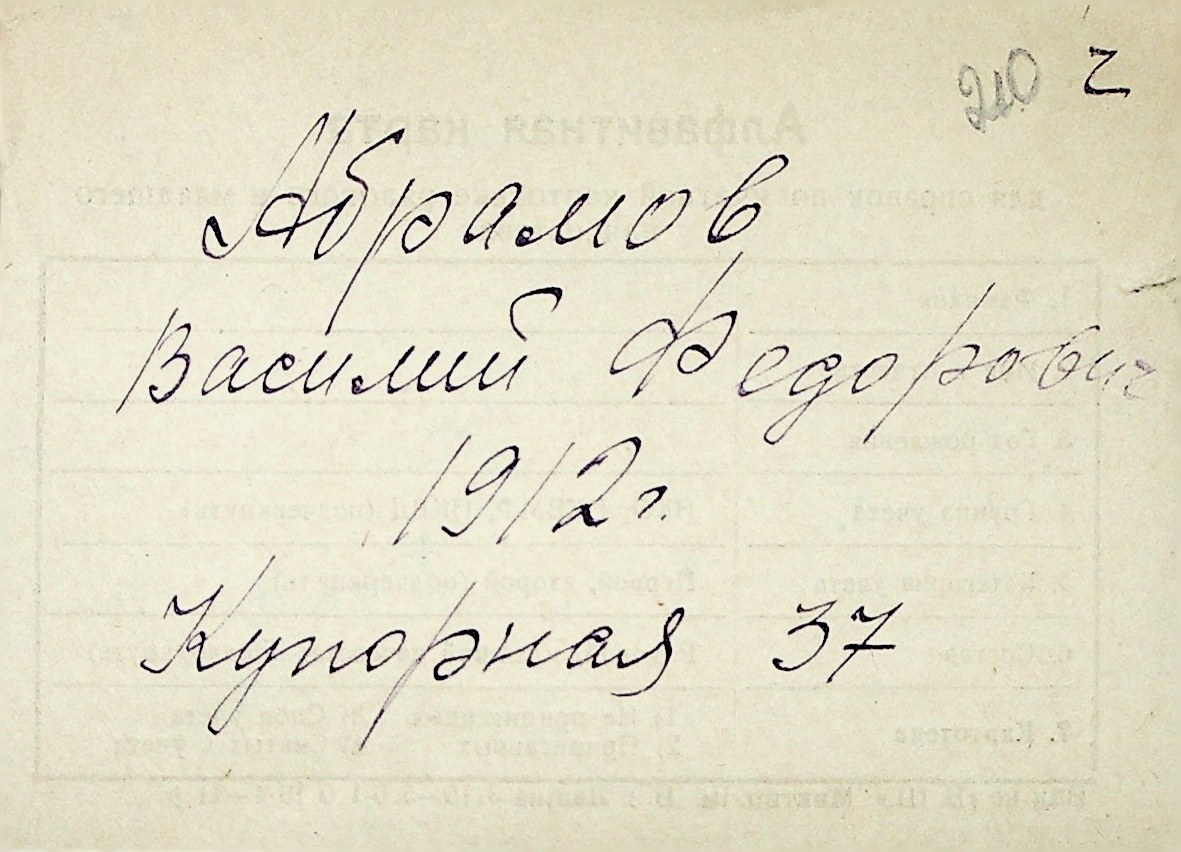 210 2
Абрамов
Василий Федорович
1912 г.
Купорная 37